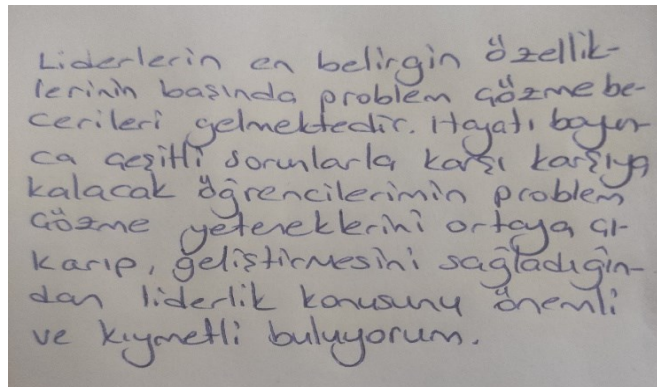 Liderlerin en belirgin özellik-
lerinin başında problem çözme be-
cerileri gelmektedir. Hayatı boyun-
ca çeşitli sorunlarla karşı karşıya
kalacak öğrencilerimin problem
çözme yeteneklerini ortaya çı-
karıp, geliştirmesini sağladığın-
dan liderlik konusunu önemli
ve kıymetli buluyorum.